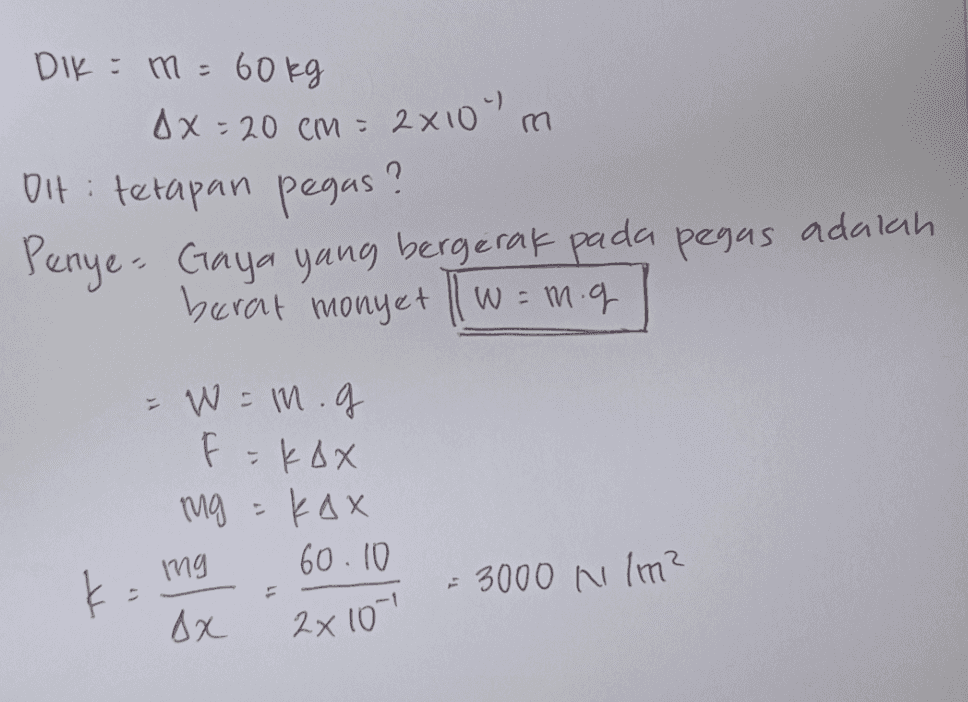 DIK = m = 60 kg
Δx = 20 cm = 2x10⁻¹ m
Dit : tetapan pegas?
Penye = Gaya yang bergerak pada pegas adalah
berat monyet || W = m.g
= W = m.g
F = kΔx
mg = kΔx
k = mg/Δx = 60.10/2x10⁻¹ = 3000 N/m²